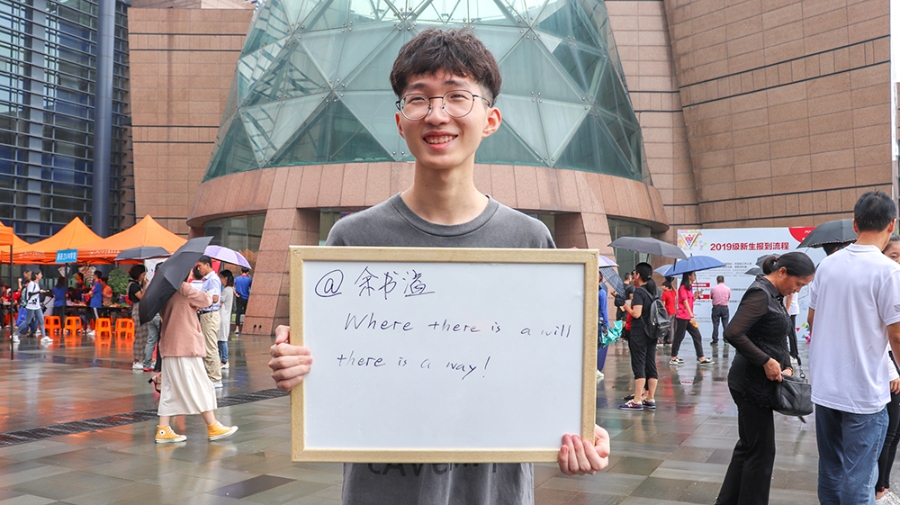 @余书溢
Where there is a will
there is a way!
2019级新生报到流程